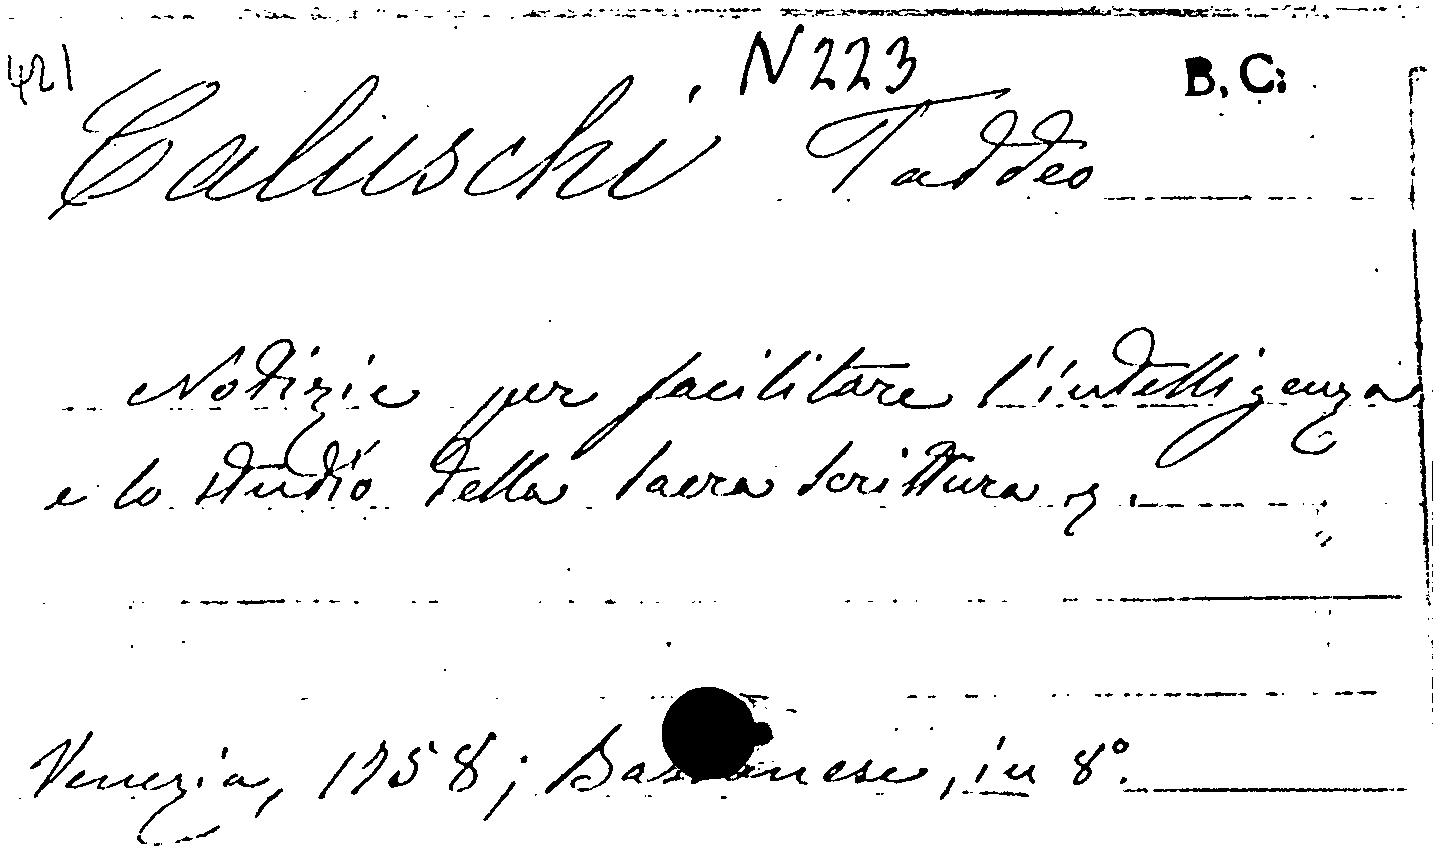 421 N 223 B. C.
Caluschi, Taddeo
Notizie per facilitare l'intelligenza
e lo studio della Sacra Scrittura
Venezia, 1758; in 8°.